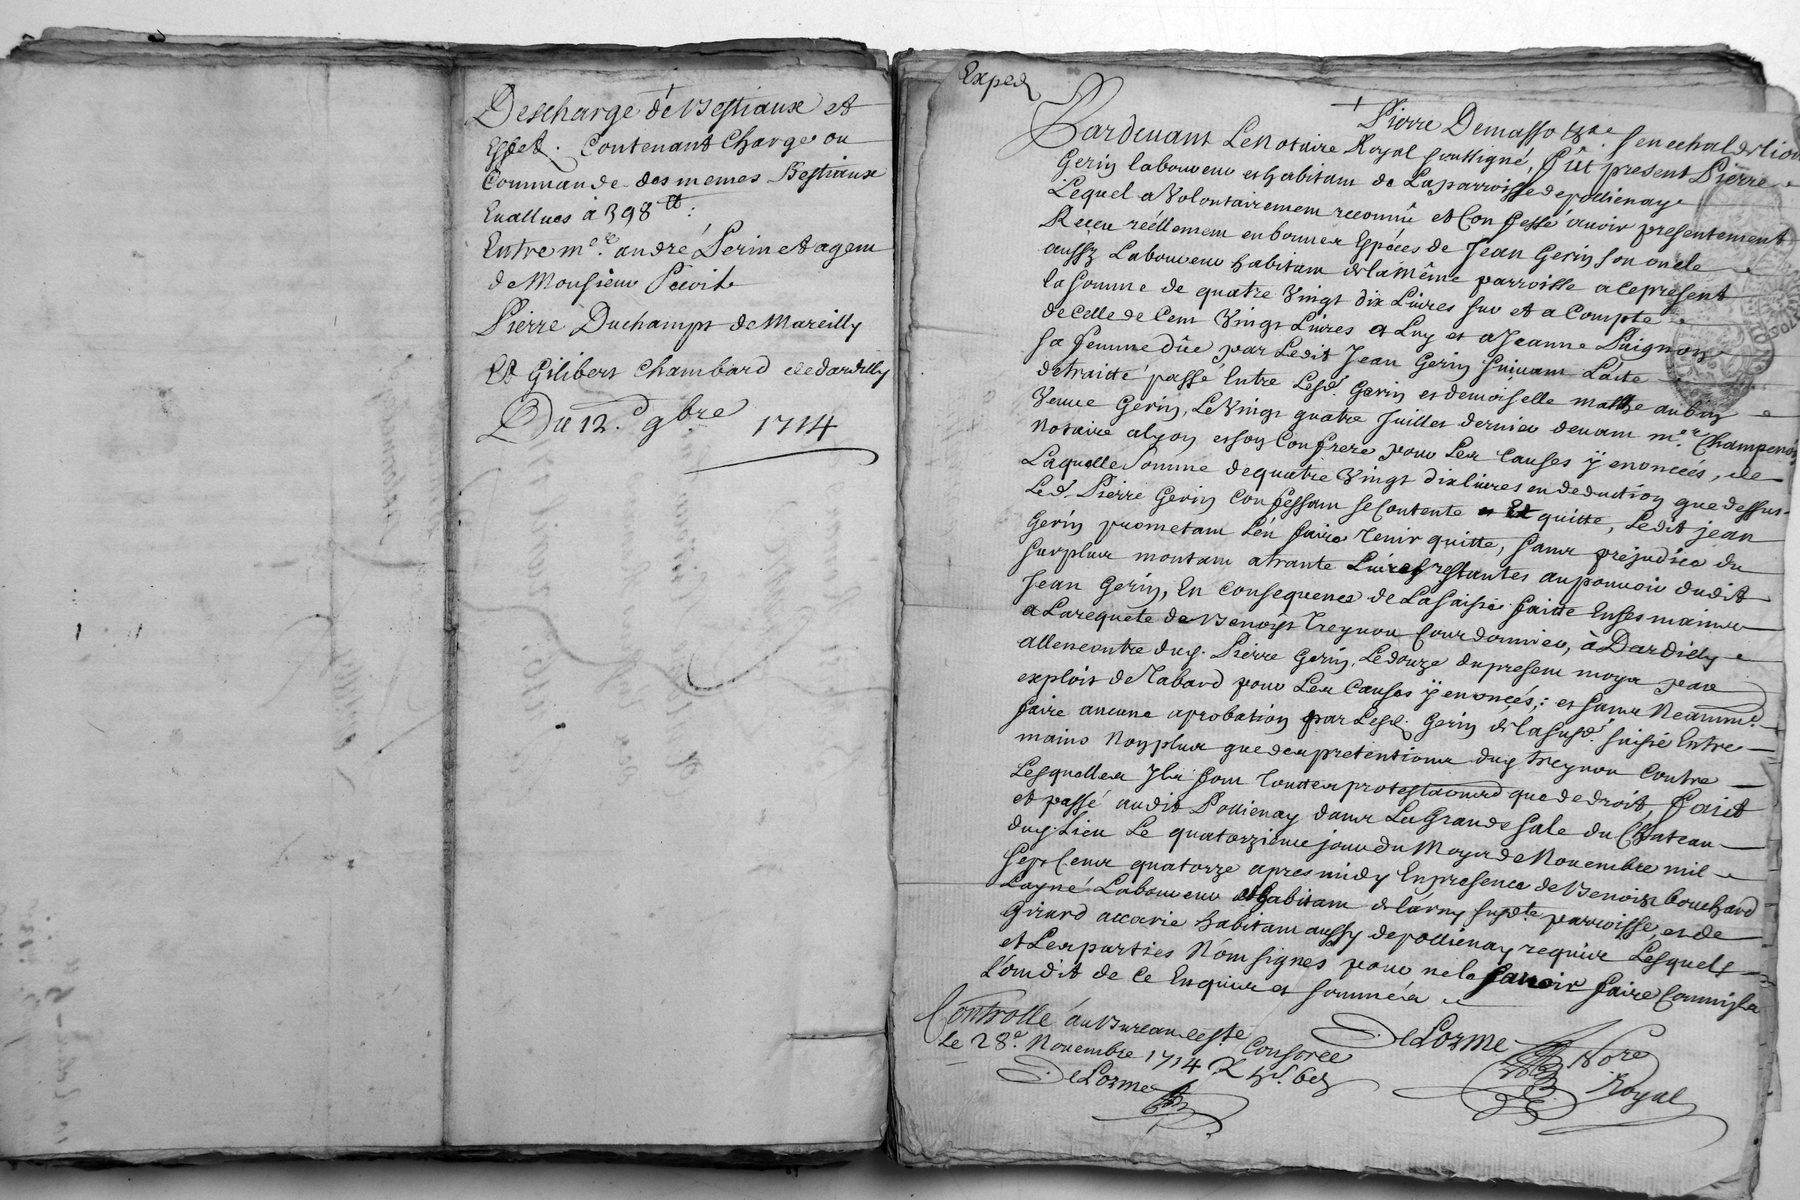 Descharge de Bestiaux et
Effet. Contenant Charge ou
Commande des memes Bestiaux
Evallués à 398 tt:
Entre me. andré Perinet agent
de Monsieur
Pierre Duchamps de Marcilly
Et Gilibert Chambard de dardilly
Du 12.e 9bre 1714
Exped
Pierre Demasso Senechal de Lion
Pardevant Le Notaire Royal soussigné, fût present Pierre
Gerin laboureur et habitant de La parroisse de pollienay
Lequel a Volontairement reconnû et Confessé avoir presentement
Receu réellement en bonnes Espéces de Jean Gerin son oncle
aussy Laboureur habitant de la Même parroisse a ce present
la somme de quatre Vingt dix Livres sur et a Compte
de Celle de Cent Vingt Livres a Luy et a Jeanne Puignon
sa femme dûe par Ledit Jean Gerin suivant L'acte
de traitté passé Entre Lesd. Gerin et demoiselle aubin
Veuve Gerin, Le Vingt quatre Juillet dernier devant me. Champenois
Notaire a Lyon et son Confrere pour Les Causes ÿ enoncées, de
Laquelle somme de quatre Vingt dix livres en deduction que dessus
Led. Pierre Gerin Confessant se Contente Et quitte, Ledit jean
Gerin prometant L'en faire tenir quitte, sans prejudice du
surplus montant a trante Livres restantes au pouvoir dudit
Jean Gerin, En Consequence de La saisie faitte En ses mains
a La requete de Benoist Treynou Courdonnier, à Dardilly
allencontre dud. Pierre Gerin, Le douze du present moys par
exploit de Tabard pour Les Causes ÿ enoncés; et sans Neanmo.
faire aucune aprobation par Lesd. Gerin de la susd. saisie Entre
mains Non plus que des pretentions dud treynou Contre
Lesquelles Ils font touttes protestations que de droit, fait
et passé audit Pollienay dans La Grande sale du Chateau
dud. Lieu Le quatorzieme jour du Moys de Novembre mil
sept Cent quatorze apres midy En presence de Benoist bouchard
Layné Laboureur et habitant de Larny susdte parroisse, et de
Girard accarie habitant aussy de pollienay requis Lesquels
et Les parties N'ont signés pour ne le savoir faire Comm
L'ont dit de Ce Enquis et sommés
Controllé au Bureau
Le 28.e Novembre 1714
DeLorme
DeLorme Nore
Royal